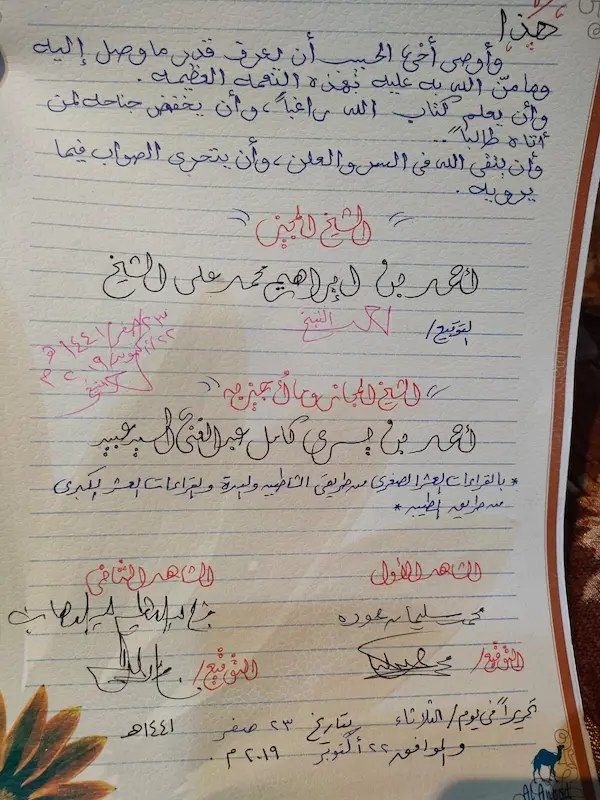 هذا
وأوصي أخي الحبيب أن يعرف قدر ما وصل إليه
وما منّ الله به عليه بهذه النعمة العظيمة .
وأن يعلم كتاب الله راغباً، وأن يخفض جناحه لمن
أتاه طالباً ..
وأن يتقي الله في السر والعلن، وأن يتحرى الصواب فيما
يرويه .
الشيخ المجيز
أحمد بن إبراهيم محمد علي الشيخ
التوقيع/ أحمد الشيخ
٢٣/صفر/١٤٤١ هـ
٢٢/أكتوبر/٢٠١٩ م
الشيخ المجاز وما أُجيز به
أحمد بن يسري كامل عبد الغني السيد عبيد
* بالقراءات العشر الصغرى من طريقي الشاطبية والدرة والقراءات العشر الكبرى
من طريق الطيبة *
الشاهد الأول
الشاهد الثاني
محمد سليمان عوده
التوقيع/
التوقيع/
تحريراً في يوم/ الثلاثاء بتاريخ ٢٣ صفر ١٤٤١هـ
والموافق ٢٢ أكتوبر ٢٠١٩ م .